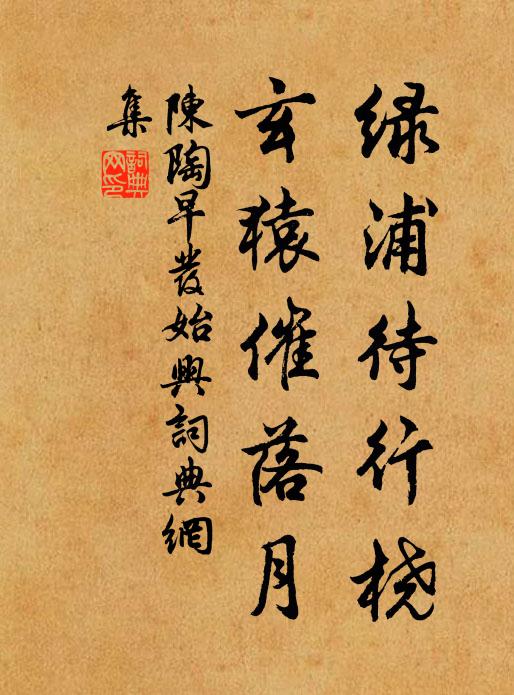 绿浦待行桡
玄猿催落月
陳陶早發始興詞典網
集
詞典
网印